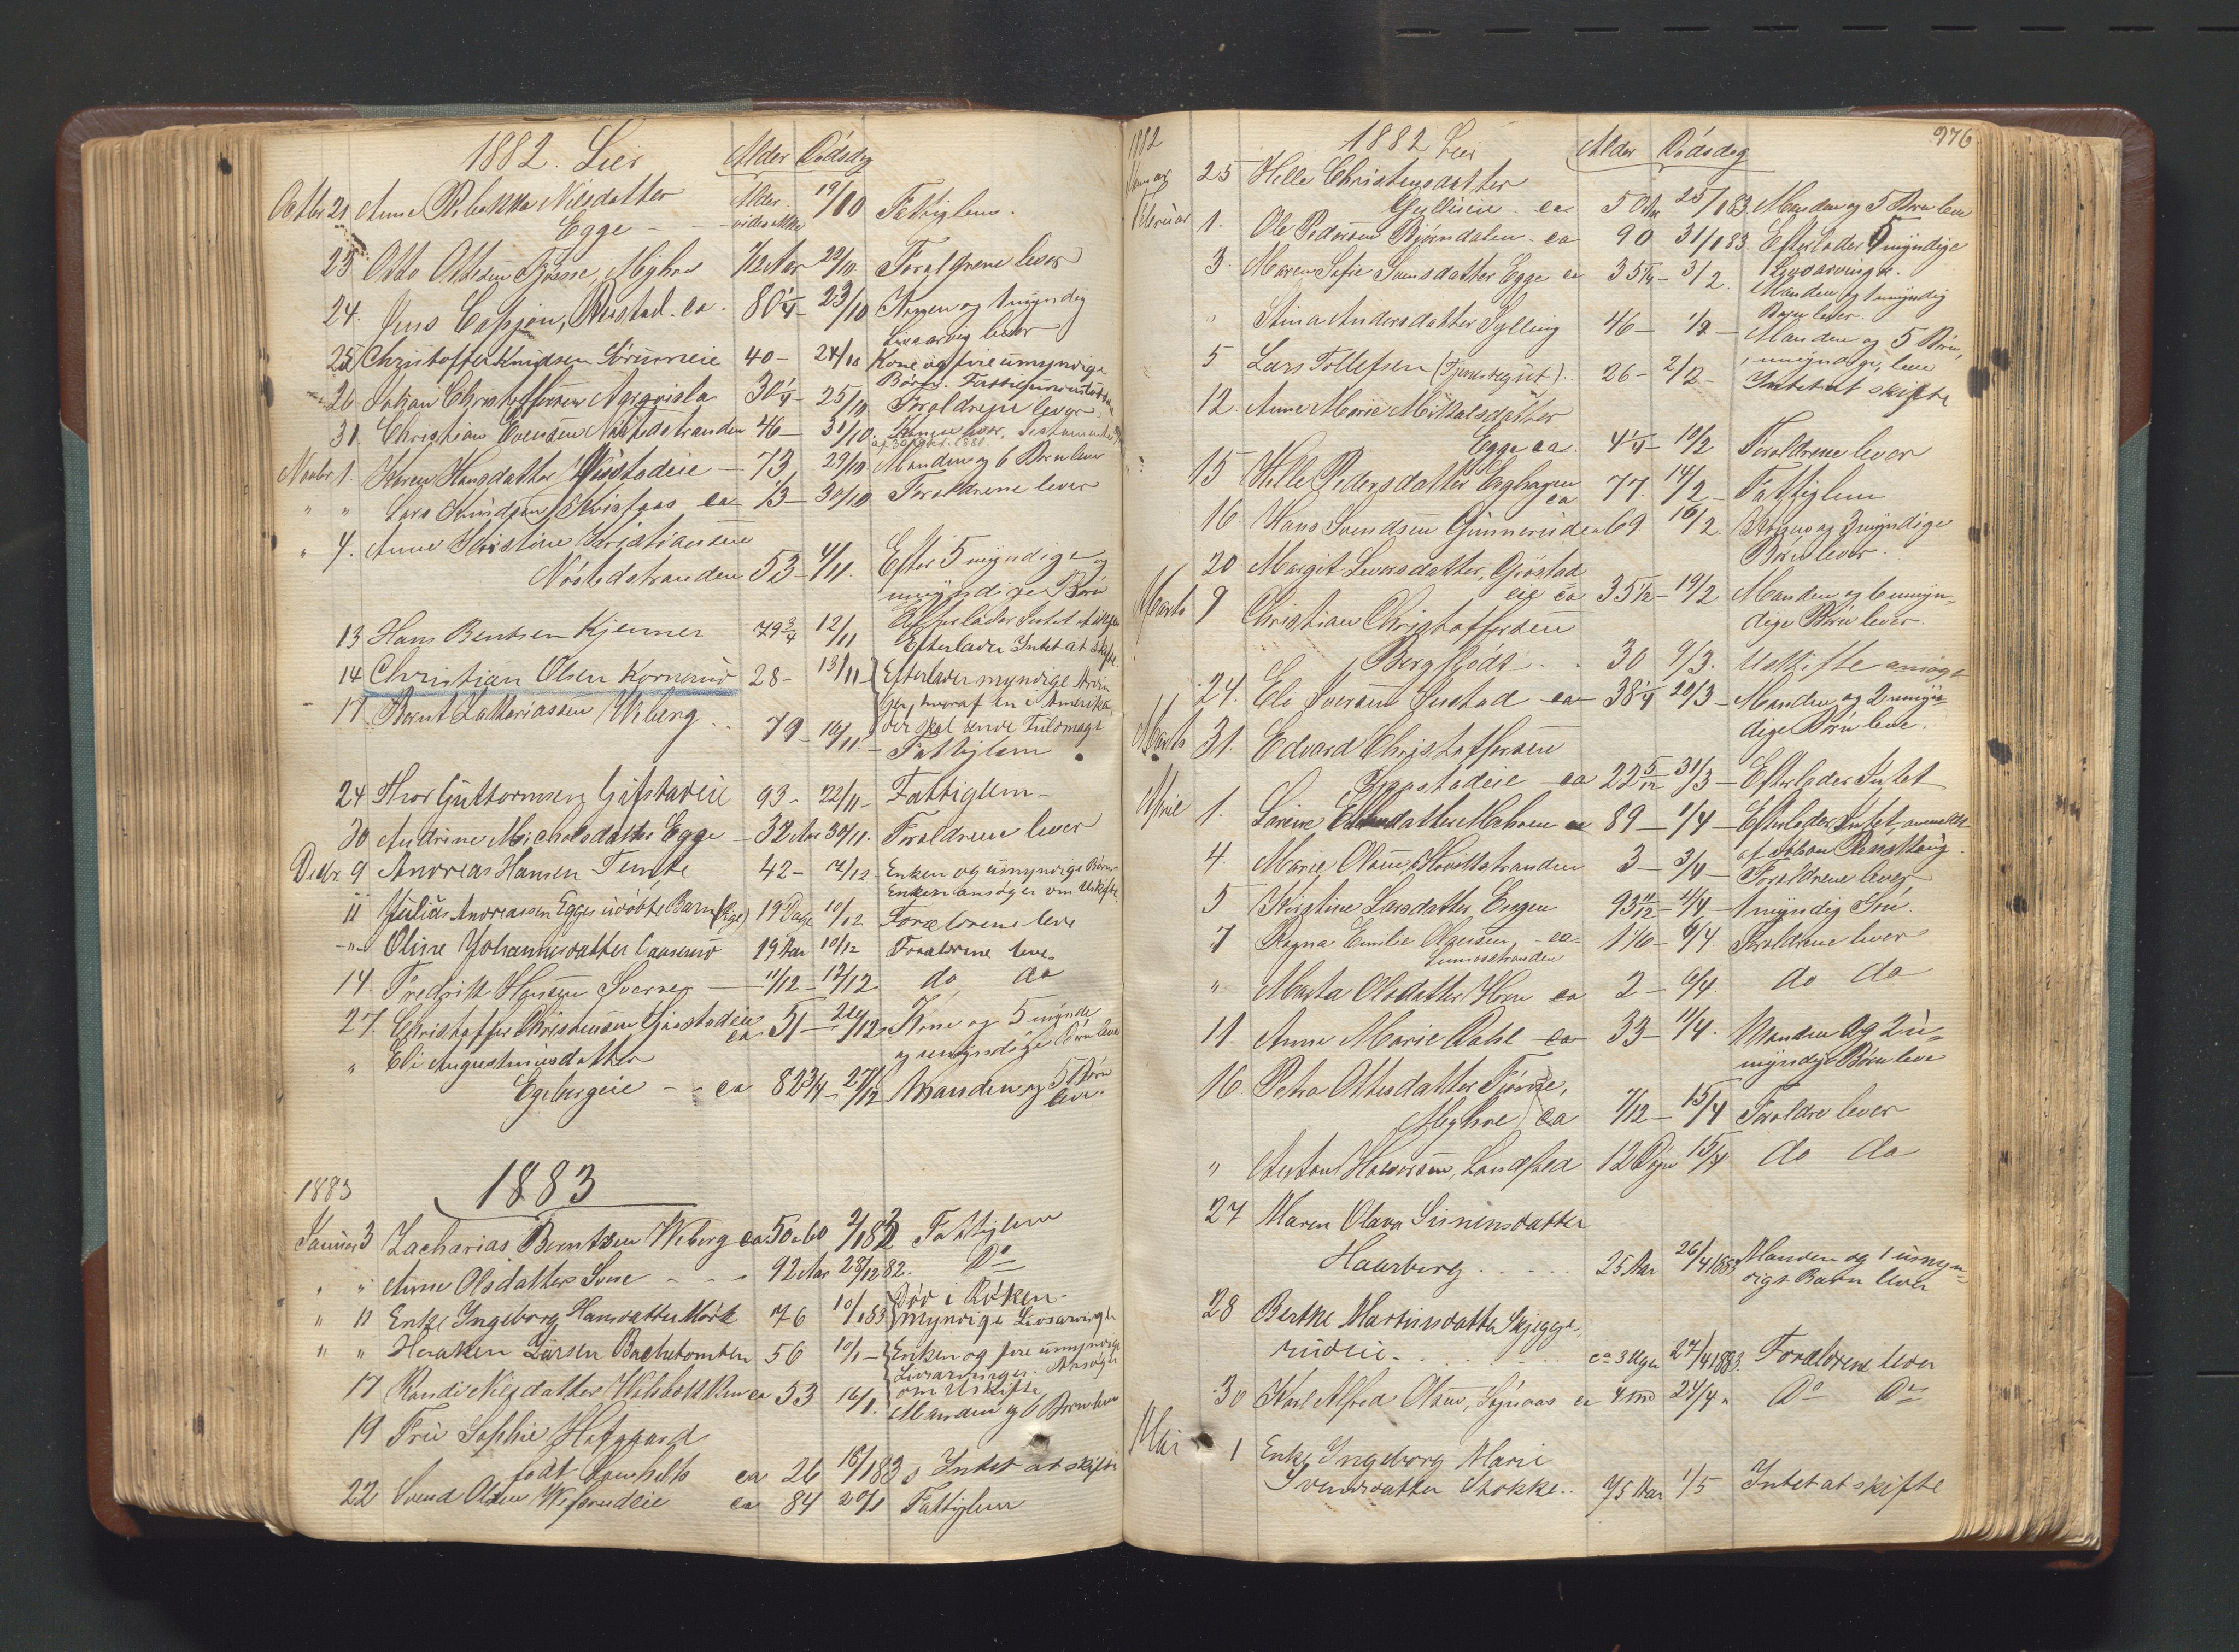 1882. Lier Alder Dödsdg
Octbr 21 Anne Rebekka Nilsdatter Alder 19/10 Fattiglem.
Egge - - vides ikke
25 Otto Ottesen Myhre 1/2 Aar 22/10 Foræeldrene lever
24. Jens ca. 80 1/4 - 23/10 Konen og 1 myndig
Livsarving lever
25 Christoffer Knudsen 40 - 24/10 Kone og fire umyndige
Børn.
26 Johan Christoffersen 30 1/4 - 25/10 Foræeldrene lever
31. Christian Evensen Nöstedstranden 46 - 31/10. Konen lever,
Novbr 1. Karen Hansdatter - 73, 29/10 Manden og 6 Børn lever
" " Lars Knudsen, ca 1/3 - 30/10 Foræeldrene lever
" 4. Anne Kristine Kristiansen
Nöstedstranden 53 - 4/11. Efter 5 myndige og
umyndige Børn
13 Hans Bentsen Kjenner 79 3/4 12/11 Efterlader Intet at skifte
Efterlader Intet at skifte.
14 Christian Olsen Kornerud 28 - 13/11 Efterlader myndige Arvin
ger, hvoraf en i Amerika,
17 Bernt Zakkariassen Wiberg.. 79 - 16/11 - der skal sende Fuldmagt
Fattiglem
24 Thor Guttormsen, Gifstadeie 93 - 22/11 - Fattiglem -
30 Andrine Michelsdatter Egge - 32 Aar 30/11. Foræeldrene lever
Decbr. 9 Andreas Hansen Tente 42 - 7/12 - Enken og umyndige Børn
Enken ansøger om Uskifte.
11 Julius Andreassen Egges udöbte Barn (Pige) 19 Dage 10/12 Forældrene leve
-"- Oline Johannesdatter 19 Aar 10/12 Forældrene leve
14. Fredrik Hansen - 11/12 - 12/12 do do
27. Christoffer Christensen Gjøstadeie ca 51 - 24/12 - Kone og 5 myndi
og umyndige Børn leve
" Eli Augustinusdatter
Egebergeie - - ca 82 3/4 - 27/12 Manden og 5 Børn
leve.
1883
1883
Januar 3 Zacharias Berntsen Wiberg ca 50 a 60 2/1 82 Fattiglem
" " Anne Olsdatter - - - 92 Aar 28/12 82. Do
" 11 Enke Ingeborg Hansdatter Mörk 76 10/1 83 Död i Röken -
myndige Livsarvinger
" " Haaken Larsen Bachetomten 56 10/1 - Enken og fire umyndige
Livsarvinger. Ansøger
om Uskifte
17 Randi Nilsdatter ca 53 16/1. Manden og 6 Børn leve
19 Fru Sophie Hofgaard
født ca 26 18/1 83 Intet at skifte
22 Svend Olsen ca 84 20/1 Fattiglem
976
1882 1882 Lier Alder Dödsdag
Januar 25 Helle Christensdatter
Gullieie - ca 50 Aar 25/1 83. Manden og 5 Børn leve
Februar 1. Ole Pedersen Bjørndalen - ca 90 31/1 83. Efterlader 5 myndige
Livsarvinger.
3. Maren Sofie Svensdatter Egge ca 35 1/4 - 3/2. Manden og 1 myndig
Barn lever.
" Stina Andersdatter Sylling 46 - 1/2 - Manden og 5 Børn,
umyndige, leve
5 Lars Tollefsen (Tjenestegut).. 26 - 2/2 - Intet at skifte
12. Anne Marie Mikalsdatter
Egge ca. 4 1/4 - 10/2 Foræeldrene lever
15 Helle Pedersdatter Eghagen ca 77. 14/2 - Fattiglem
16. Hans Svendsen Ginnerud ca 69. 16/2. Konen og 3 myndige
Børn lever.
20 Margit Iversdatter, Gjøstad
eie ca 35 1/2 - 19/2 Manden og 6 umyn-
dige Børn lever.
Marts 9 Christian Christoffersen
Bergflødt.. 30 9/3. Uskifte ansøgt
24. Eli Iversen ca 38 1/4 20/3 - Manden og 2 umyn-
dige Børn leve.
Marts 31. Edvard Christoffersen
Gjøstadeie - ca 22 5/12 31/3 - Efterlader Intet
April 1. ca 89 - 1/4 - Efterlader Intet, anmeldt
af Johan
4. Marie Olsen, 3 - 3/4 - Foræeldrene lever
5 Kirstine Larsdatter Engen 93 11/12 - 4/4 - 1 myndig
7 Ragna Emilie - ca 1 1/6 - 6/4. Foræeldrene lever
" Marta Olsdatter Horn ca 2 - 6/4. do do
11. Anne Marie Dahl - ca 33 - 11/4. Manden og 2 u-
myndige Børn leve
16. Petra Ottesdatter
Myhre ca 7/12 - 15/4 Foræeldre lever
" Anton Halvorsen, Landfald 12 Dgr 15/4 do do
27 Maren Olava Simensdatter
Haarberg..... 25 Aar 26/4 1883 Manden og 1 umyn-
digt Barn lever
28 Berthe Martinsdatter Skjegge
rudeie......... ca 3 Uger 27/4 1883. Forældrene lever
30 Karl Alfred Olsen, ca 4 md 24/4 " Do Do
Mai 1 Enke Ingeborg Marie
Svendsdatter Stokke.. 75 Aar 1/5 Intet at skifte